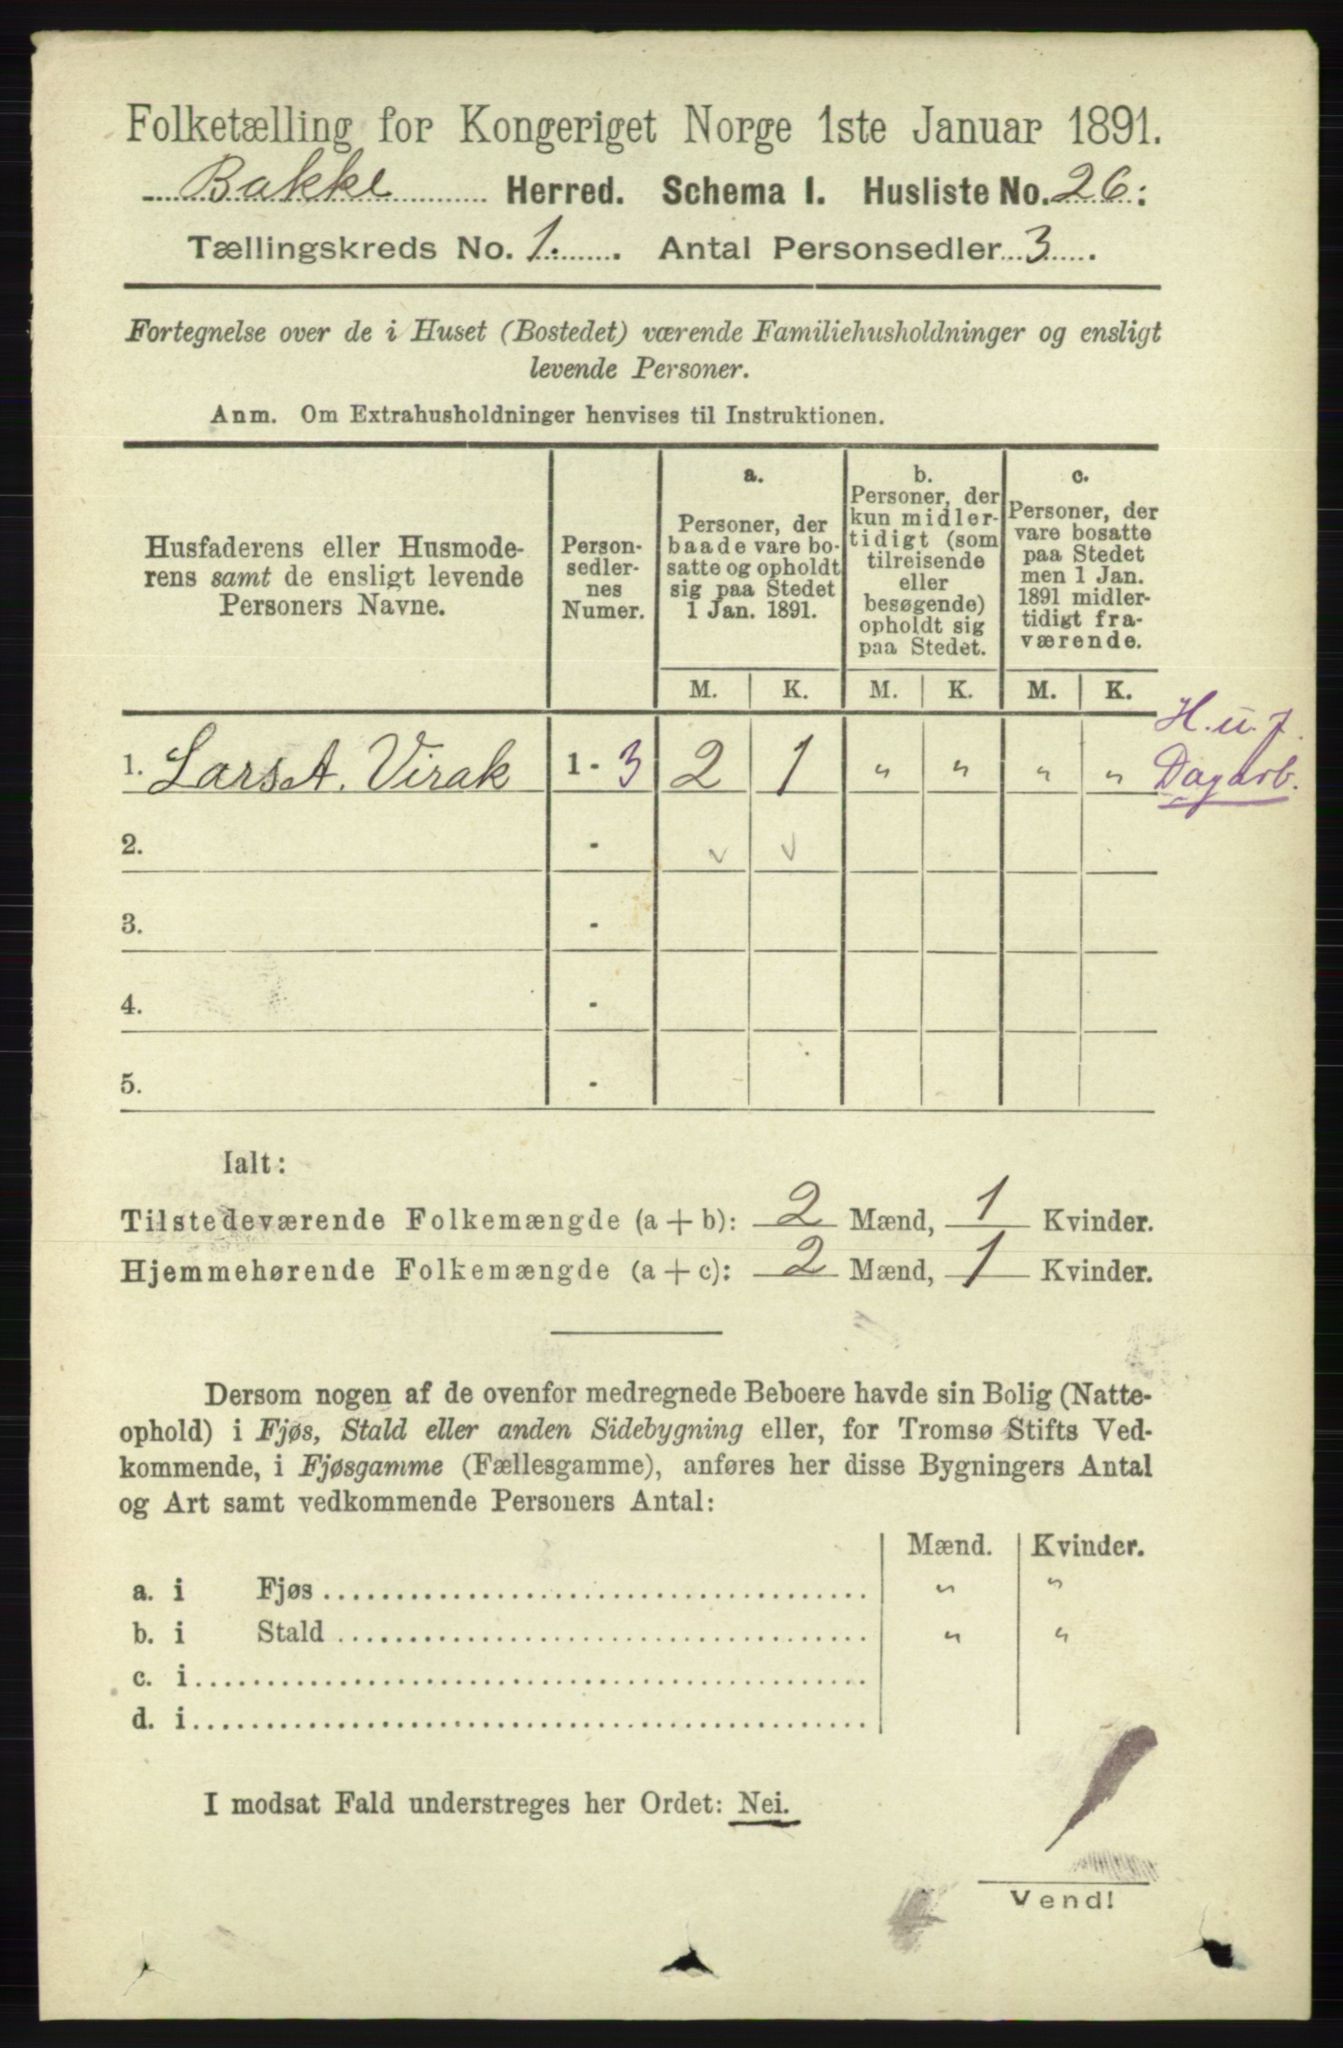 Folketælling for Kongeriget Norge 1ste Januar 1891.
Bakke Herred. Schema I. Husliste No. 26:
Tællingskreds No. 1. Antal Personsedler 3.
Fortegnelse over de i Huset (Bostedet) værende Familiehusholdninger og ensligt
levende Personer.
Anm. Om Extrahusholdninger henvises til Instruktionen.
Husfaderens eller Husmode-
rens samt de ensligt levende
Personers Navne.
Person-
sedler-
nes
Numer.
a.
Personer, der
baade vare bo-
satte og opholdt
sig paa Stedet
1 Jan. 1891.
b.
Personer, der
kun midler-
tidigt (som
tilreisende
eller
besøgende)
opholdt sig
paa Stedet.
c.
Personer, der
vare bosatte
paa Stedet
men 1 Jan.
1891 midler-
tidigt fra-
værende.
M. K. M. K. M. K.
1. Lars A. Virak 1 - 3 2 1 „ „ „ „
H. u. J.
Dagarb.
2. -
3. -
4. -
5. -
Ialt:
Tilstedeværende Folkemængde (a + b): 2 Mænd, 1 Kvinder.
Hjemmehørende Folkemængde (a + c): 2 Mænd, 1 Kvinder.
Dersom nogen af de ovenfor medregnede Beboere havde sin Bolig (Natte-
ophold) i Fjøs, Stald eller anden Sidebygning eller, for Tromsø Stifts Ved-
kommende, i Fjøsgamme (Fællesgamme), anføres her disse Bygningers Antal
og Art samt vedkommende Personers Antal:
Mænd. Kvinder.
a. i Fjøs „ „
b. i Stald „ „
c. i
d. i
I modsat Fald understreges her Ordet: Nei.
Vend!